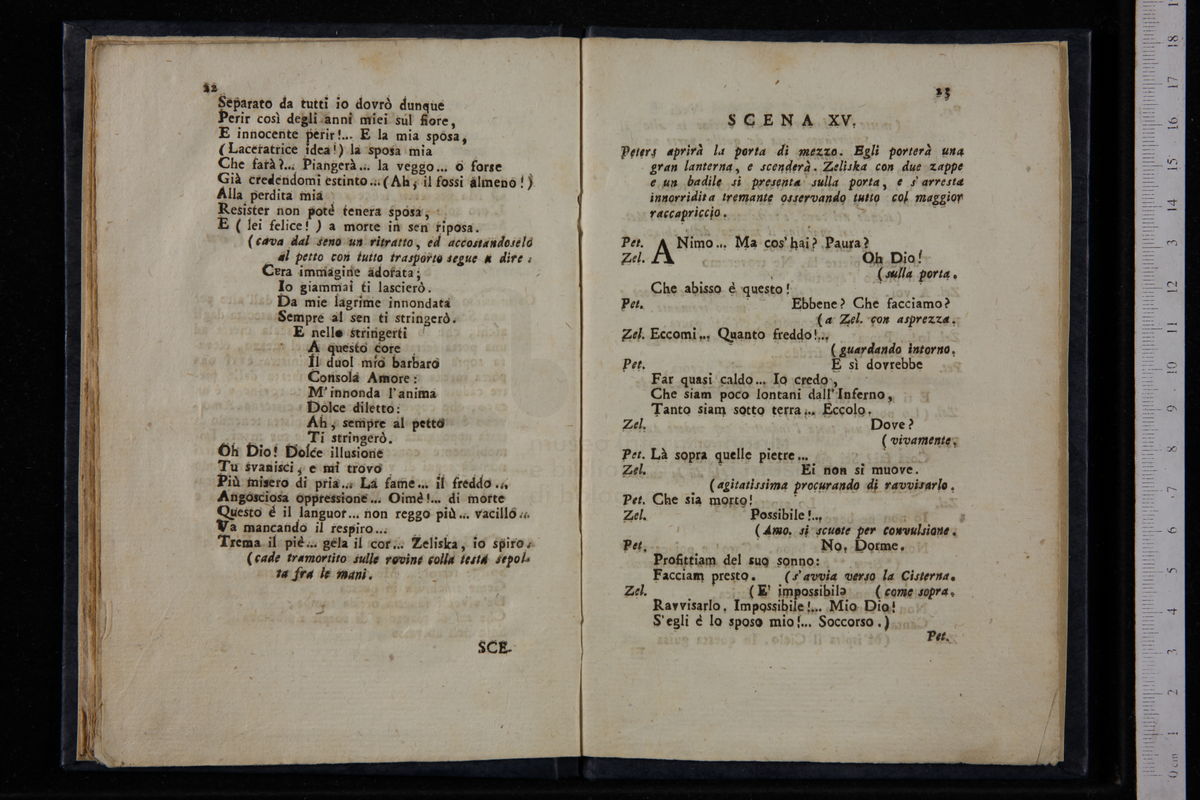 22
Separato da tutti io dovrò dunque
Perir così degli anni miei sul fiore,
E innocente perir!... E la mia sposa,
(Laceratrice idea!) la sposa mia
Che farà?... Piangerà... la veggo... o forse
Già credendomi estinto... (Ah, il fossi almeno!)
Alla perdita mia
Resister non potè tenera sposa,
E ( lei felice! ) a morte in sen riposa.
(cava dal seno un ritratto, ed accostandoselo
al petto con tutto trasporto segue a dire:
Cara immagine adorata;
Io giammai ti lascierò.
Da mie lagrime innondata
Sempre al sen ti stringerò.
E nello stringerti
A questo core
Il duol mio barbaro
Consola Amore:
M'innonda l'anima
Dolce diletto:
Ah, sempre al petto
Ti stringerò.
Oh Dio! Dolce illusione
Tu svanisci, e mi trovo
Più misero di pria... La fame... il freddo...
Angosciosa oppressione... Oimè!... di morte
Questo è il languor... non reggo più... vacillo...
Va mancando il respiro...
Trema il piè... gela il cor... Zeliska, io spiro.
(cade tramortito sulle rovine colla testa sepol-
ta fra le mani.
SCE-
23
SCENA XV.
Peters aprirà la porta di mezzo. Egli porterà una
gran lanterna, e scenderà. Zeliska con due zappe
e un badile si presenta sulla porta, e s'arresta
innorridita tremante osservando tutto col maggior
raccapriccio.
Pet. ANimo... Ma cos'hai? Paura?
Zel. Oh Dio!
(sulla porta.
Che abisso è questo!
Pet. Ebbene? Che facciamo?
(a Zel. con asprezza.
Zel. Eccomi... Quanto freddo!...
(guardando intorno.
Pet. E sì dovrebbe
Far quasi caldo... Io credo,
Che siam poco lontani dall'Inferno,
Tanto siam sotto terra... Eccolo.
Zel. Dove?
(vivamente.
Pet. Là sopra quelle pietre...
Zel. Ei non si muove.
(agitatissima procurando di ravvisarlo.
Pet. Che sia morto!
Zel. Possibile!...
(Amo. si scuote per convulsione.
Pet. No. Dorme.
Profittiam del suo sonno:
Facciam presto. (s'avvia verso la Cisterna.
Zel. (E' impossibile (come sopra.
Ravvisarlo. Impossibile!... Mio Dio!
S'egli è lo sposo mio!... Soccorso.)
Pet.